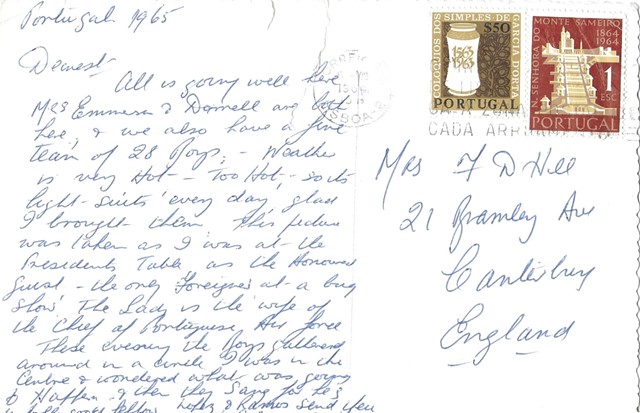 Portugal 1965
Dearest
All is going well here
Mrs Emmerson & Darnell are both
here, & we also have a fine
team of 28 Boys; - Weather
is very Hot - Too Hot, so its
light-suits every day, glad
I brought them. This picture
was taken as I was at the
Presidents Table as the Honoured
Guest - the only 'Foreigner' at a big
show. The Lady is the wife of
the Chief of Portuguese Air Force
These evening the Boys gathered
around in a circle, I was in the
Centre & wondered what was going
to Happen & then they Sang for he's
jolly good fellow. & Ramos send their
COLOQUIOS DOS SIMPLES·DE GARCIA D'ORTA
$50
1563
1963
PORTUGAL
N. SENHORA DO MONTE SAMEIRO
1864
1964
1
ESC
PORTUGAL
LISBOA-2
CADA
Mrs F D Hill
21 Bramley Ave
Canterbury
England